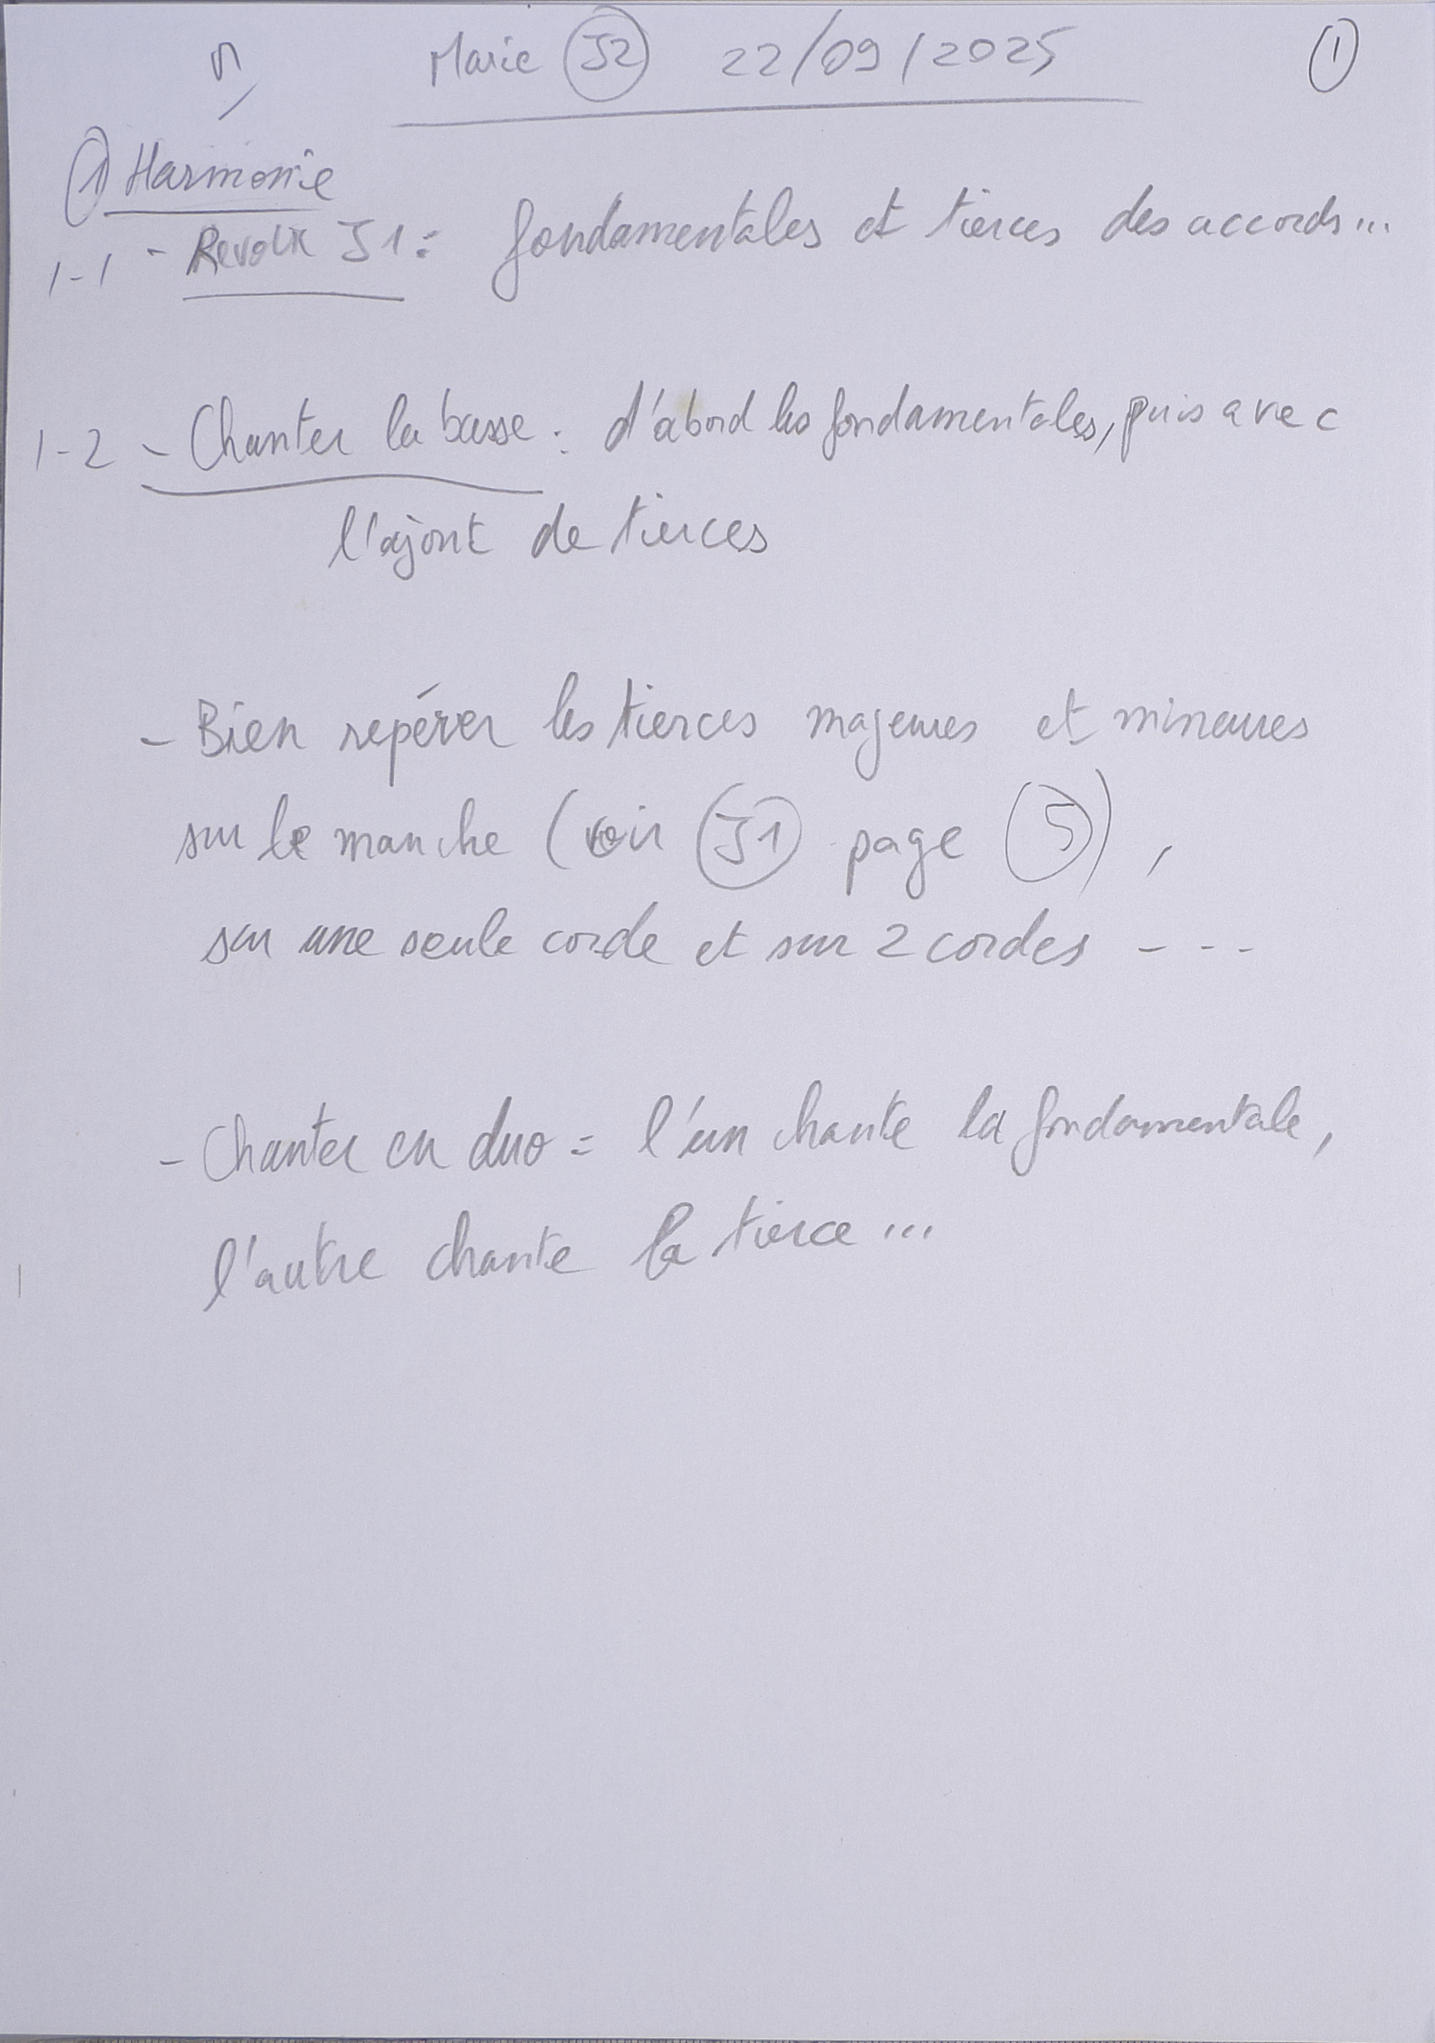 Marie J2 22/09/2025 1
1 Harmonie
1-1 - Revoir J1 : fondamentales et tierces des accords...
1-2 - Chanter la basse : d'abord les fondamentales, puis avec
l'ajout de tierces
- Bien repérer les tierces majeures et mineures
sur le manche (voir J1 page 5),
sur une seule corde et sur 2 cordes - - -
- Chanter en duo = l'un chante la fondamentale,
l'autre chante la tierce...